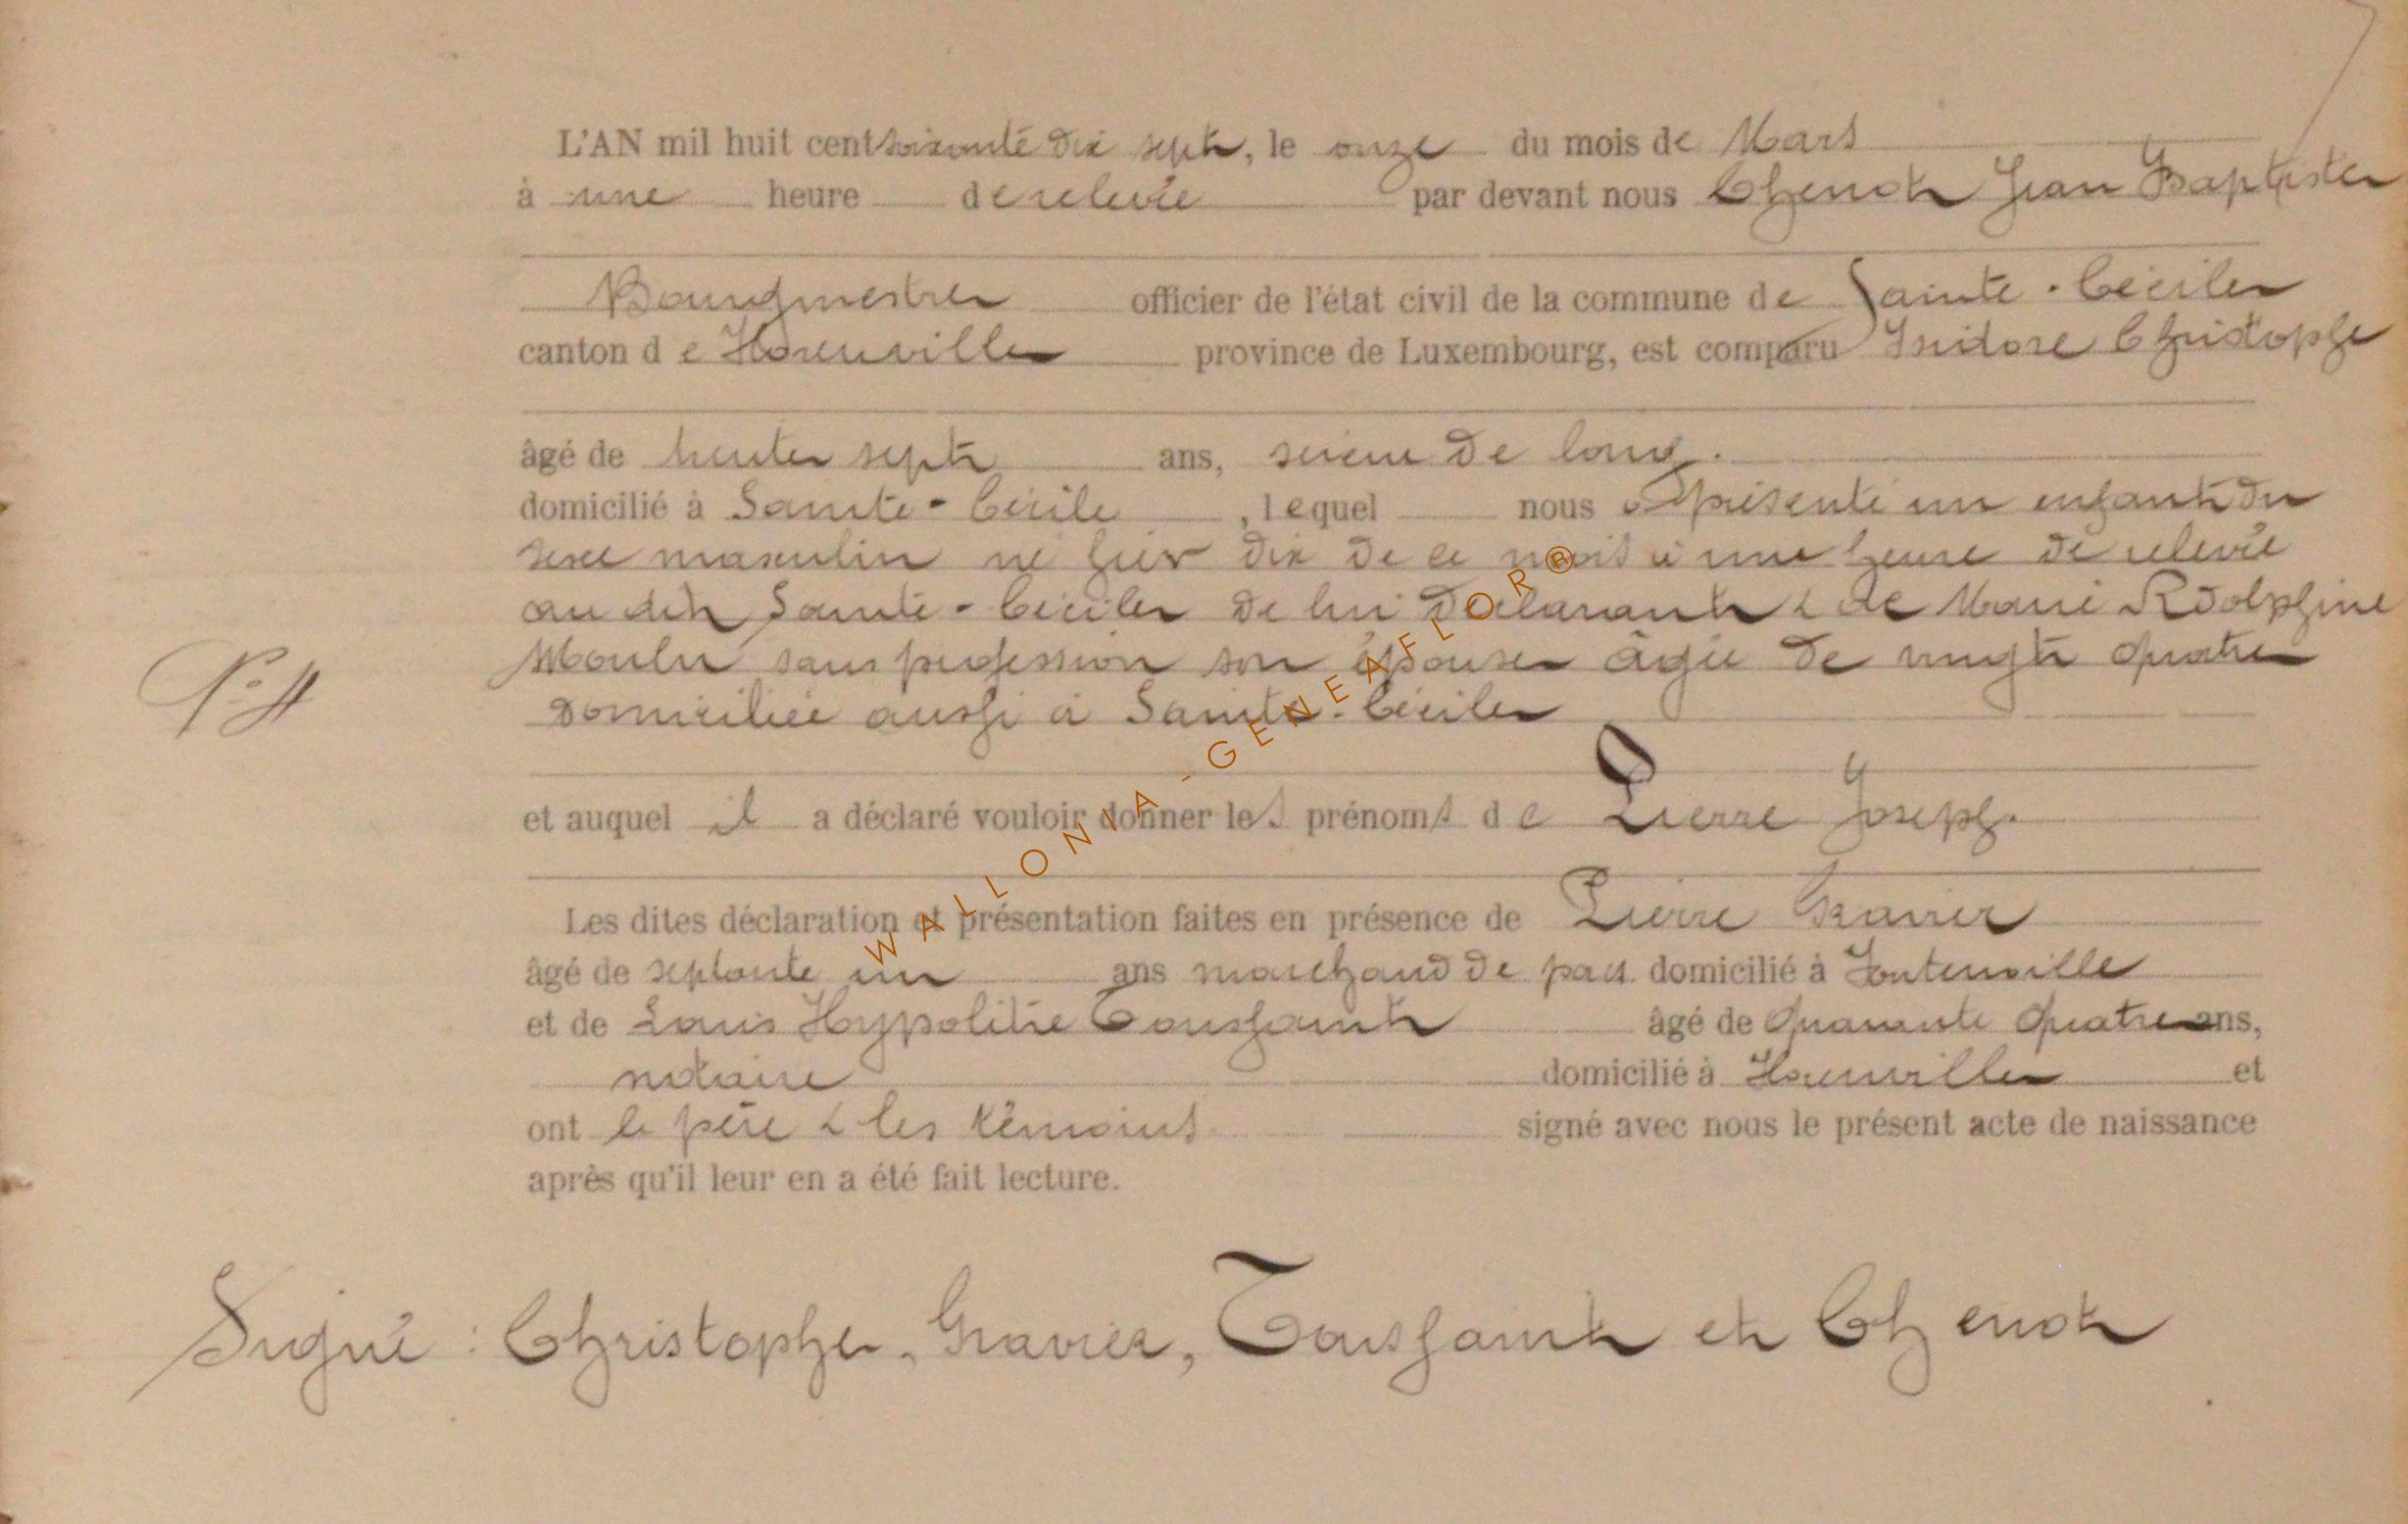 L'AN mil huit cent soixante dix sept, le onze du mois de Mars
à une heure de relevée par devant nous Chenot Jean Baptiste
Bourgmestre officier de l'état civil de la commune de Sainte-Cécile
canton de Florenville province de Luxembourg, est comparu Isidore Christophe
âgé de trente sept ans, scieur de long.
domicilié à Sainte-Cécile, lequel nous a présenté un enfant du
sexe masculin né hier dix de ce mois à une heure de relevée
au dit Sainte-Cécile de lui déclarant & de Marie Rodolphine
Moulu sans profession son épouse âgée de vingt quatre
domiciliée aussi à Sainte-Cécile
N° 4
et auquel il a déclaré vouloir donner les prénoms de Pierre Joseph.
Les dites déclaration et présentation faites en présence de Pierre Gravier
âgé de septante un ans marchand de domicilié à Fontenoille
et de Louis Hypolitie Toussaint âgé de quarante quatre ans,
notaire domicilié à Florenville et
ont le père & les témoins signé avec nous le présent acte de naissance
après qu'il leur en a été fait lecture.
Signé : Christophe, Gravier, Toussaint et Chenot
WALLONIA-GENEAFLOR®